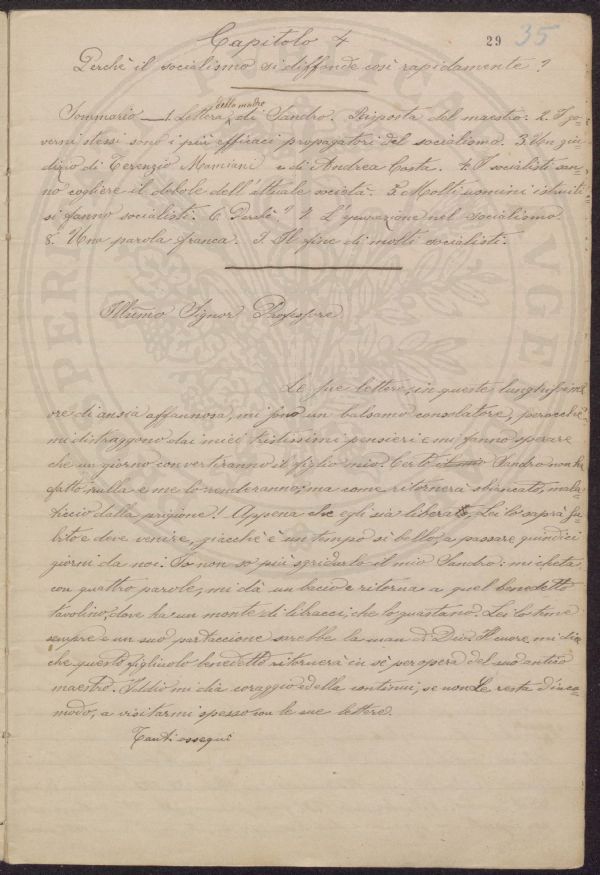 Capitolo 4
29 35
Perchè il socialismo si diffonde così rapidamente?
della madre
Sommario — 1. Lettera di Sandro. Risposta del maestro. 2. I go-
verni stessi sono i più efficaci propagatori del socialismo. 3. Un giu-
dizio di Terenzio Mamiani e di Andrea Costa. 4. I socialisti san-
no cogliere il debole dell'attuale società. 5. Molti uomini istruiti
si fanno socialisti. 6. Perchè? 7. L' nel socialismo
8. Una parola franca. 9. Il fine di molti socialisti.
Illumo Signor Professore
Le sue lettere, in queste lunghissime
ore di ansia affannosa, mi sono un balsamo consolatore, perocchè
mi distraggono dai miei tristissimi pensieri e mi fanno sperare
che un giorno convertiranno il figlio mio. Certo Sandro non ha
fatto nulla e me lo renderanno; ma come ritornerà sbiancato, mala-
ticcio dalla prigione! Appena che egli sia liberato, Lei lo saprà su-
bito e deve venire, giacchè è un tempo sì bello, a passare quindici
giorni da noi. Io non so più sgridarlo il mio Sandro: mi cheta
con quattro parole, mi dà un bacio e ritorna a quel benedetto
tavolino, dove ha un monte di libracci, che lo guastano. Lei lo teme
sempre e un suo partaccione sarebbe la man di Dio. Il cuore mi dice
che questo figliuolo benedetto ritornerà in sè per opera del suo antico
maestro. Iddio mi dia coraggio ed ella continui, se non Le resta d'inco-
modo, a visitarmi spesso con le sue lettere.
Tanti ossequi
PER